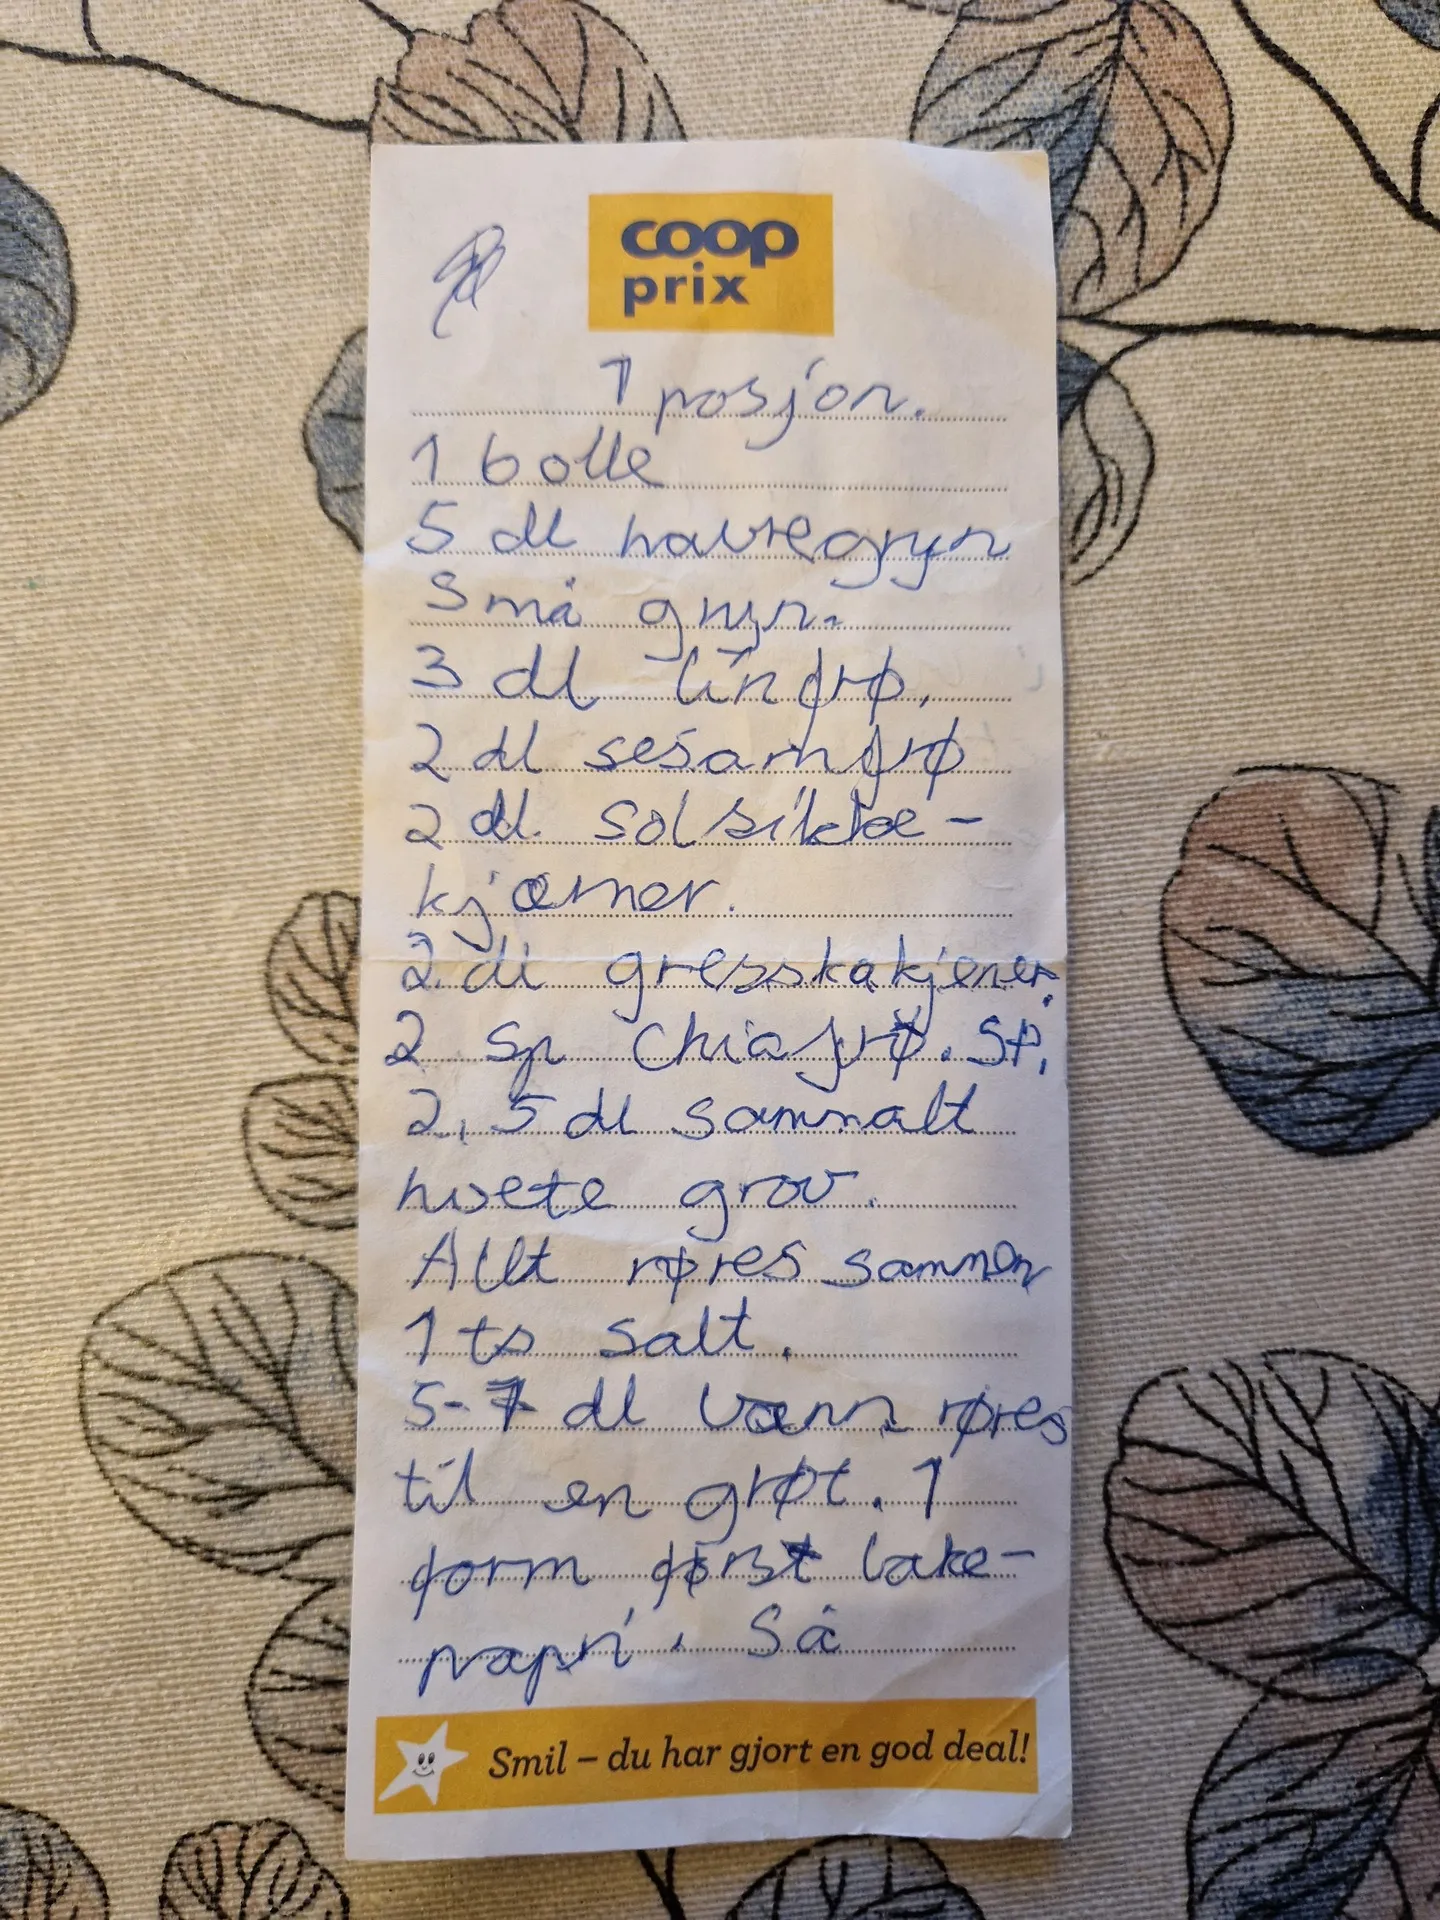 coop
prix
1 posjon.
1 bolle
5 dl havregryn
Små gryn.
3 dl linfrø.
2 dl sesamfrø
2 dl. solsikke-
kjærner.
2 dl gresskakjener.
2 sp chiafrø. sp.
2,5 dl sammalt
hvete grov.
Allt røres sammen
1 ts salt.
5-7 dl vann røres
til en grøt. 1
form først bake-
papri. Så
Smil – du har gjort en god deal!